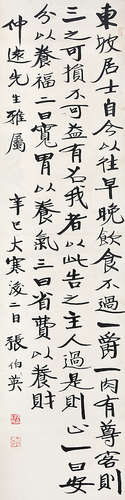 東坡居士自今以往早晚飲食不過一爵一肉有尊客則
三之可損不可益有召我者以此告之主人過是則止一曰安
分以養福二曰寬胃以養氣三曰省費以養財
仲遠先生雅屬 辛巳大寒後二日 張伯英